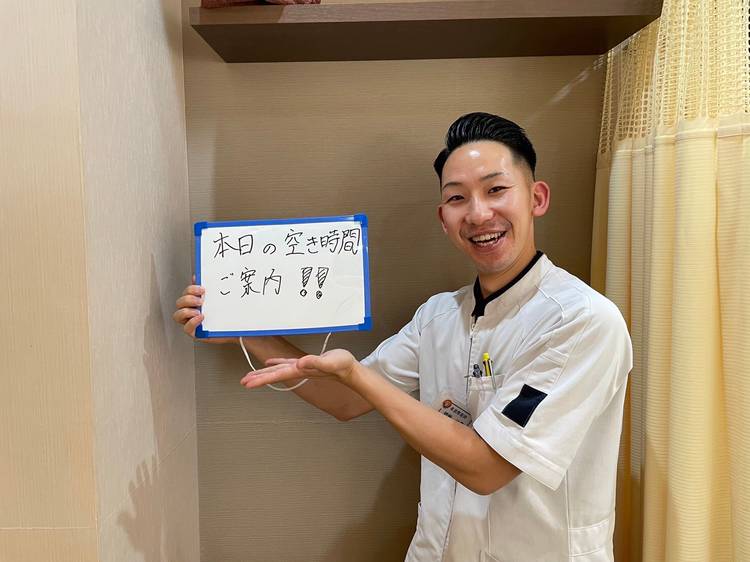 本日の空き時間
ご案内!!